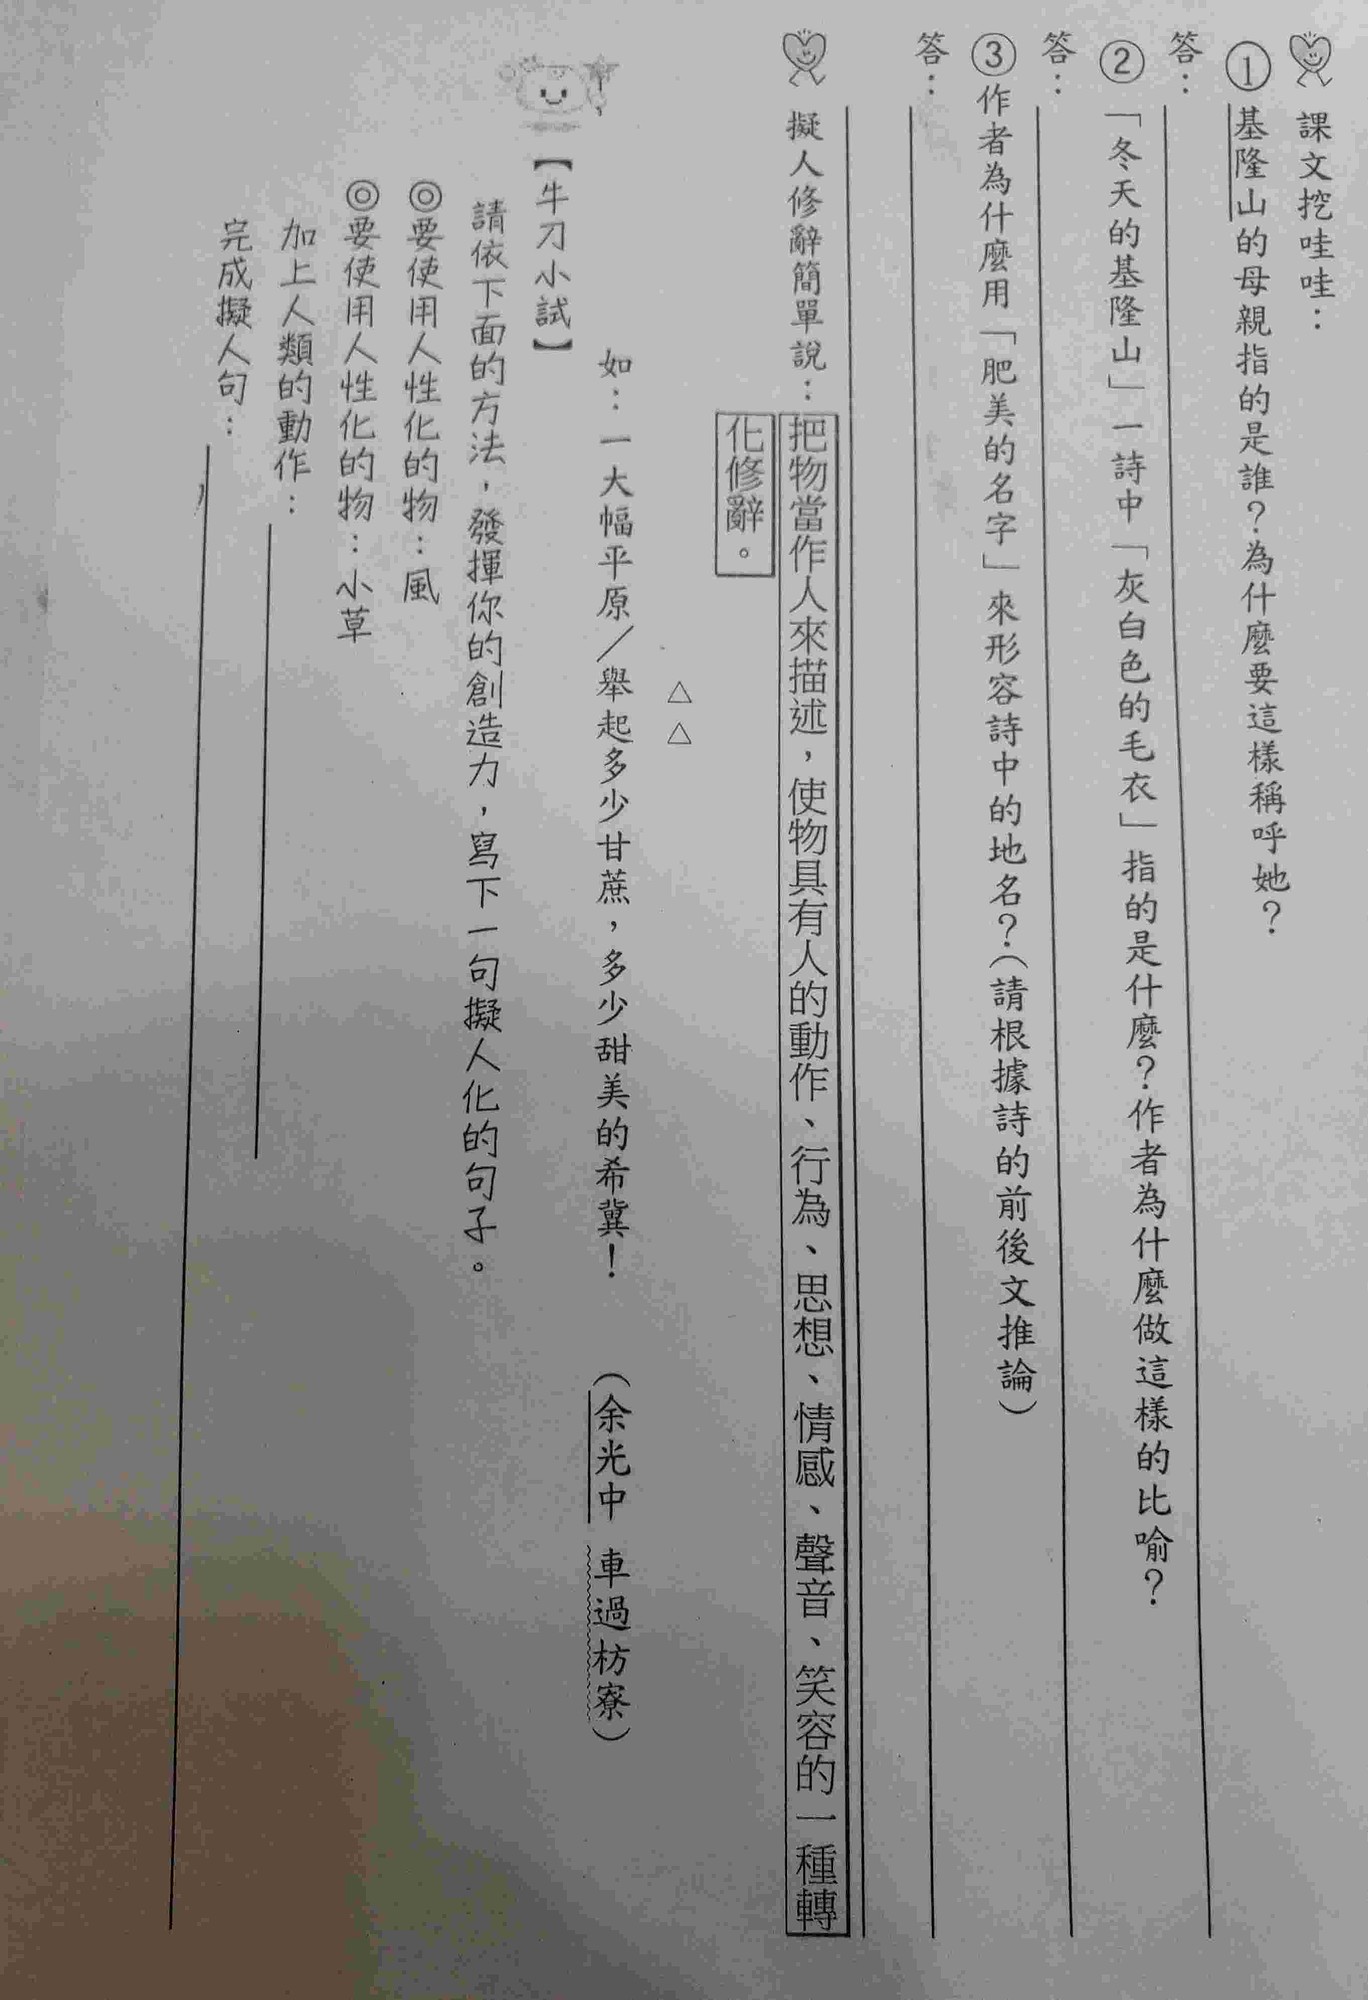 課文挖哇哇：
①基隆山的母親指的是誰？為什麼要這樣稱呼她？
答：
②「冬天的基隆山」一詩中「灰白色的毛衣」指的是什麼？作者為什麼做這樣的比喻？
答：
③作者為什麼用「肥美的名字」來形容詩中的地名？（請根據詩的前後文推論）
答：
擬人修辭簡單說：把物當作人來描述，使物具有人的動作、行為、思想、情感、聲音、笑容的一種轉
化修辭。
△△
如：一大幅平原／舉起多少甘蔗，多少甜美的希冀！（余光中 車過枋寮）
【牛刀小試】
請依下面的方法，發揮你的創造力，寫下一句擬人化的句子。
◎要使用人性化的物：風
◎要使用人性化的物：小草
加上人類的動作：
完成擬人句：